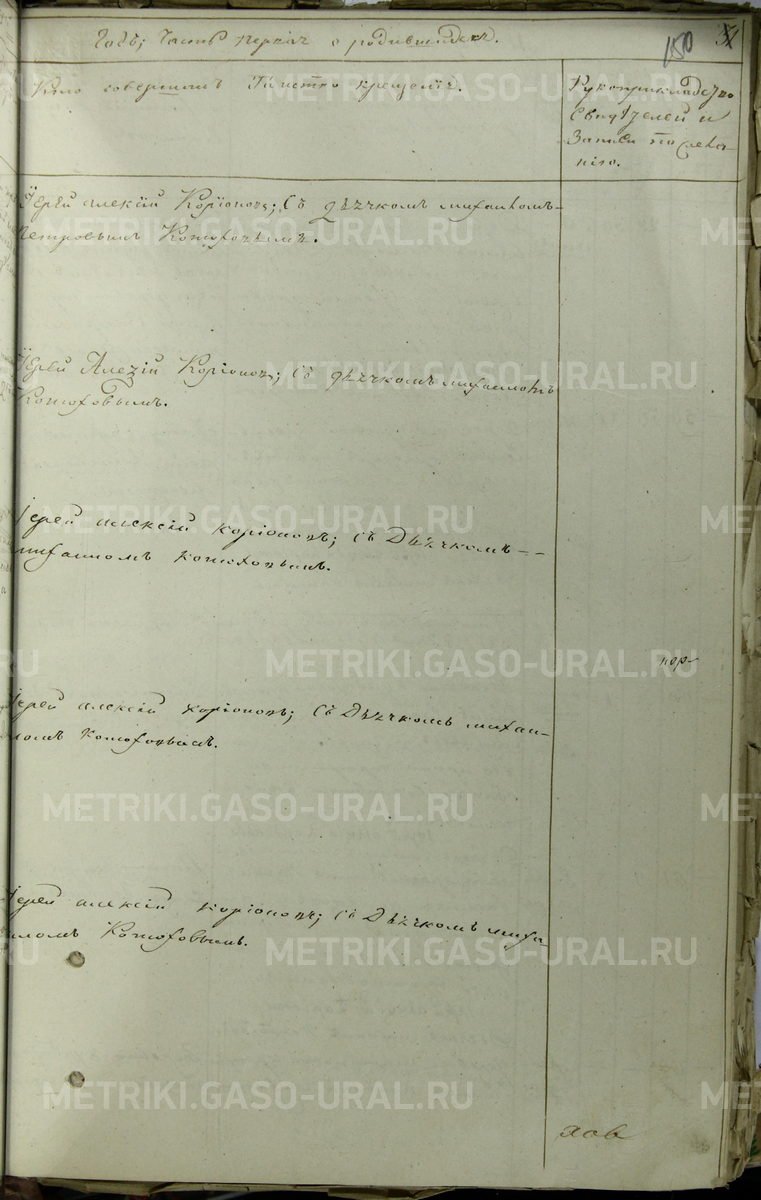 Годѣ; Часть первая о родившихся.
150
Кто совершалъ Таинство крещенія.
Рукоприкладство
Свидѣтелей и
Записи по
нію.
Іерей Алексій Коріоновъ; съ дьячкомъ михаиломъ-
Петровымъ Конюховымъ.
Іерей Алексій Коріоновъ; Съ дьячкомъ михаиломъ
Конюховымъ.
Іерей алексій коріоновъ; съ Дьячкомъ --
михаиломъ конюховымъ.
пор-
Іерей алексій коріоновъ; съ Дьячкомъ михаи-
ломъ Конюховымъ.
Іерей алексій коріоновъ; съ Дьячкомъ миха-
иломъ Конюховымъ.
хов
METRIKI.GASO-URAL.RU